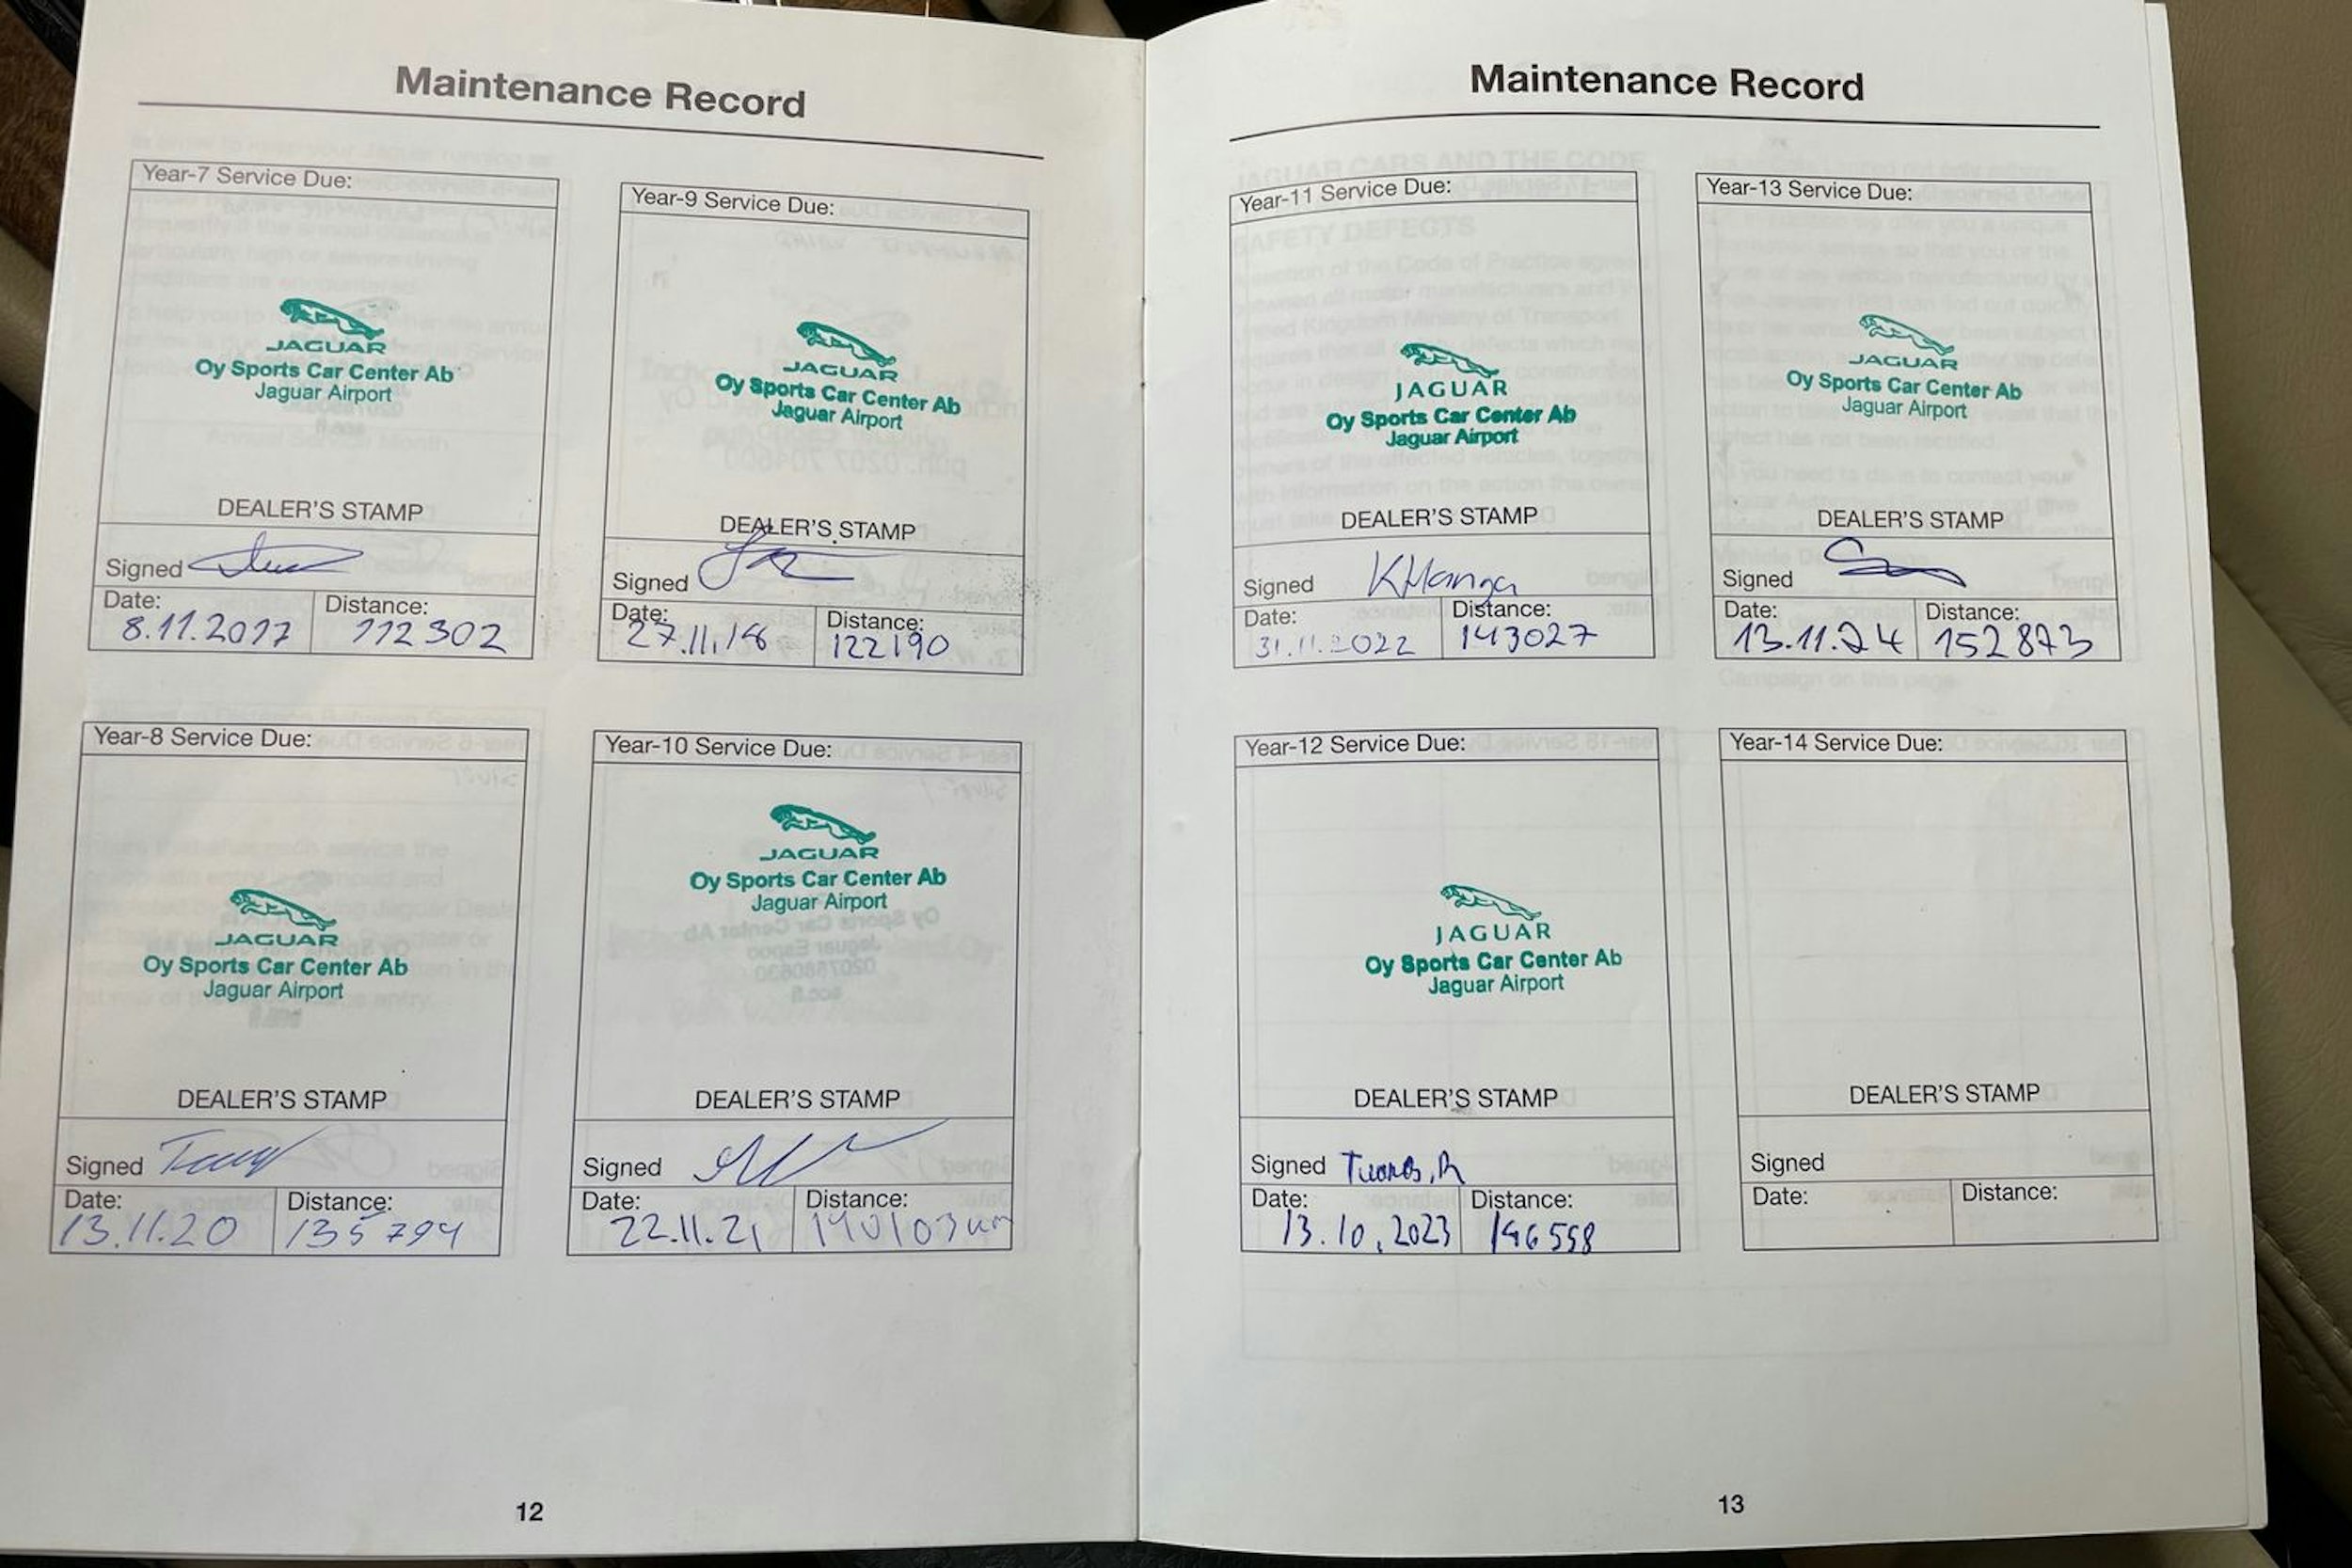 Maintenance Record
Year-7 Service Due:
JAGUAR
Oy Sports Car Center Ab
Jaguar Airport
DEALER'S STAMP
Signed
Date:
8.11.2017
Distance:
112302
Year-9 Service Due:
JAGUAR
Oy Sports Car Center Ab
Jaguar Airport
DEALER'S STAMP
Signed
Date:
27.11.18
Distance:
122190
Year-8 Service Due:
JAGUAR
Oy Sports Car Center Ab
Jaguar Airport
DEALER'S STAMP
Signed
Date:
13.11.20
Distance:
135794
Year-10 Service Due:
JAGUAR
Oy Sports Car Center Ab
Jaguar Airport
DEALER'S STAMP
Signed
Date:
22.11.21
Distance:
140103km
12
Maintenance Record
Year-11 Service Due:
JAGUAR
Oy Sports Car Center Ab
Jaguar Airport
DEALER'S STAMP
Signed
Date:
31.11.2022
Distance:
143027
Year-13 Service Due:
JAGUAR
Oy Sports Car Center Ab
Jaguar Airport
DEALER'S STAMP
Signed
Date:
13.11.24
Distance:
152873
Year-12 Service Due:
JAGUAR
Oy Sports Car Center Ab
Jaguar Airport
DEALER'S STAMP
Signed
Date:
13.10.2023
Distance:
146558
Year-14 Service Due:
DEALER'S STAMP
Signed
Date:
Distance:
13